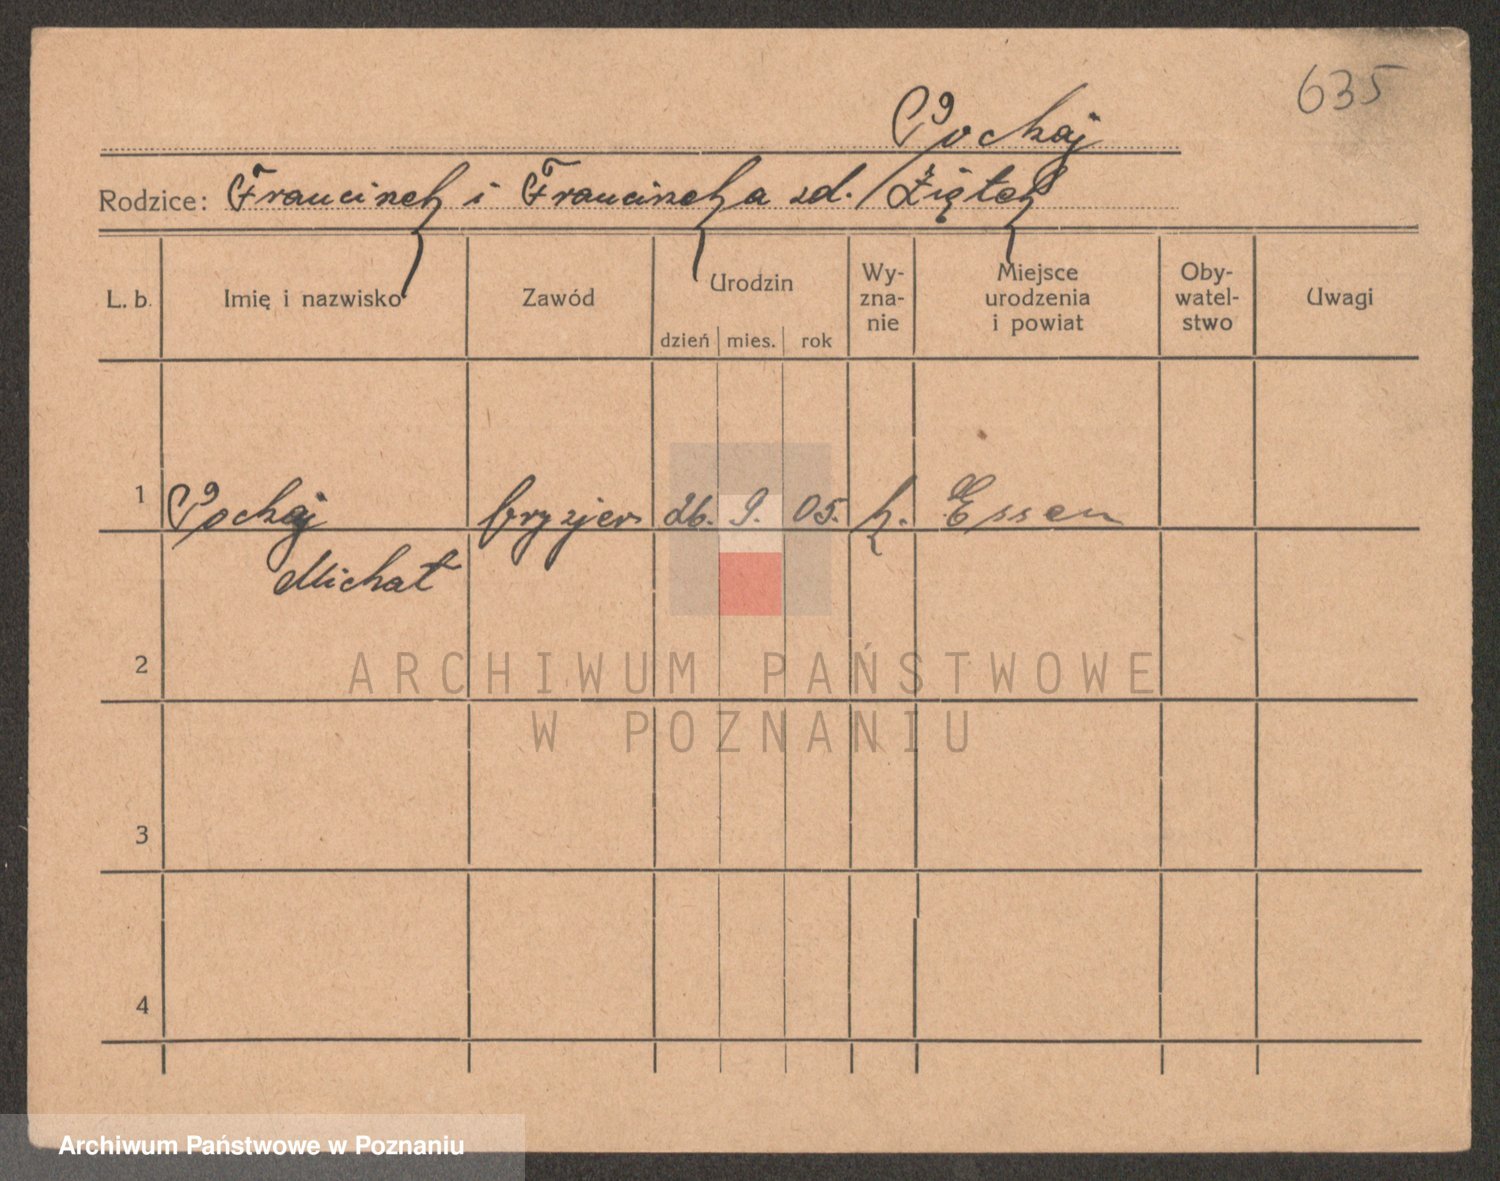 635
Pochaj
Rodzice: Franciszek i Franciszka zd. Ziętek
L. b. Imię i nazwisko Zawód Urodzin dzień mies. rok Wy-zna-nie Miejsce urodzenia i powiat Oby-watel-stwo Uwagi
1 Pochaj fryzjer 26. 9. 05. k. Essen
Michał
2
ARCHIWUM PAŃSTWOWE
W POZNANIU
3
4
Archiwum Państwowe w Poznaniu